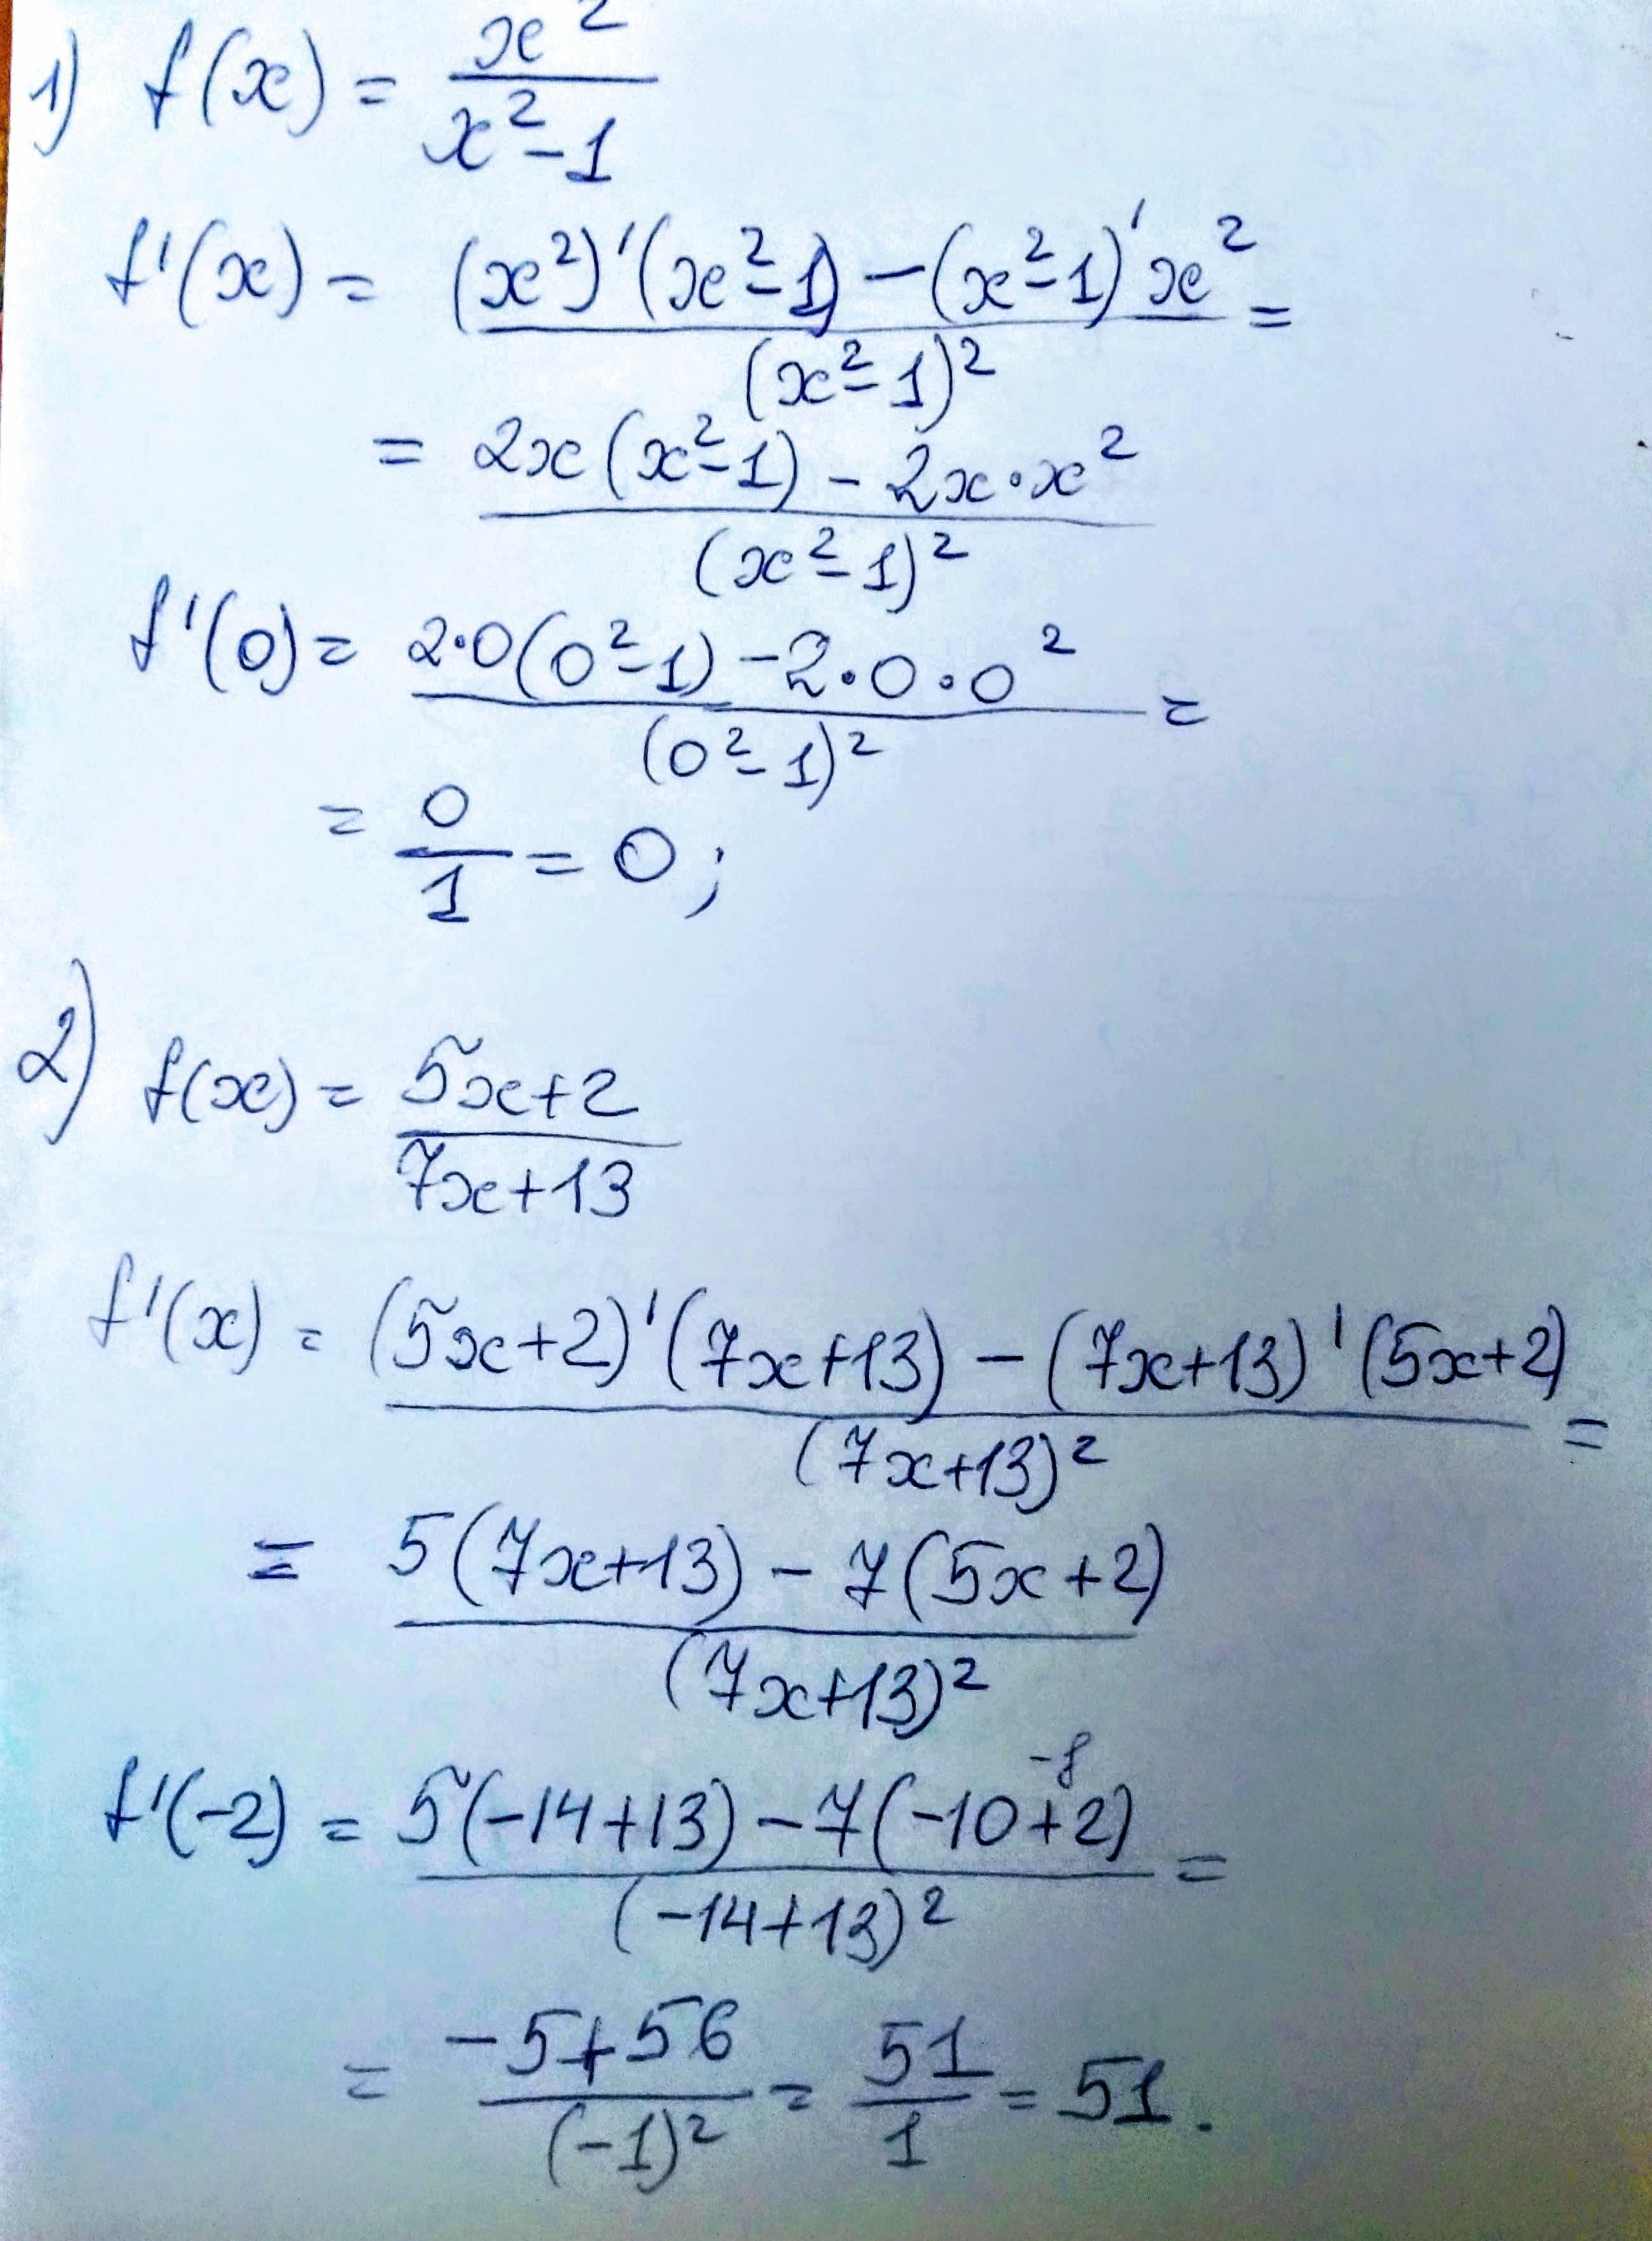 1) f(x) = x²/(x²-1)
f'(x) = ((x²)'(x²-1) - (x²-1)'x²)/(x²-1)² =
= (2x(x²-1) - 2x·x²)/(x²-1)²
f'(0) = (2·0(0²-1) - 2·0·0²)/(0²-1)² =
= 0/1 = 0;
2) f(x) = (5x+2)/(7x+13)
f'(x) = ((5x+2)'(7x+13) - (7x+13)'(5x+2))/(7x+13)² =
= (5(7x+13) - 7(5x+2))/(7x+13)²
-8
f'(-2) = (5(-14+13) - 7(-10+2))/(-14+13)² =
= (-5+56)/(-1)² = 51/1 = 51.